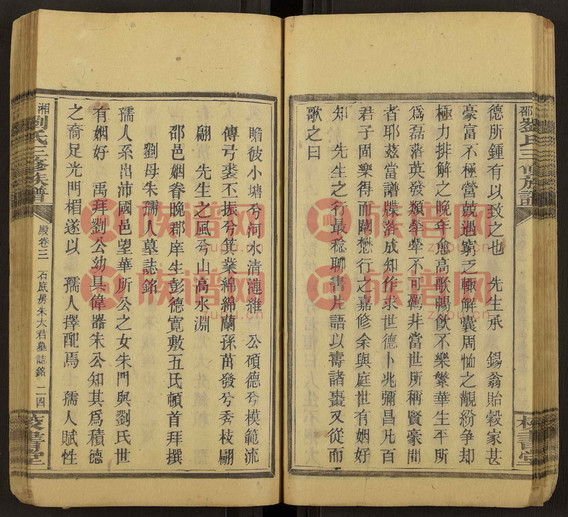 邵劉氏三修族譜
德所鍾有以致之也　先生承　錫翁貽穀家甚
豪富不極嘗鼓過窮乏輒解囊周恤之靚紛爭却
極力排解之晚年愈高歌暢飲不樂繁華生平所
為磊落英發類
者耶茲當譜牒落成知行求世德卜兆彌昌凡百
君子固樂得而關懋行之嘉修余與庭世有姻好
知　先生之行最稔聊書片語以壽諸棗又從而
歌之曰
瞻彼小塘兮河水清漣雒　公碩德兮模範流
傳弓裘丕振兮箕業綿綿蘭孫茁發兮秀枝翩
翩　先生之風兮山高水淵
邵邑姻眷晚郡庠生彭德寬敷五氏頓首拜撰
劉母朱孺人墓誌銘
孺人系出沛國邑望華所公之女朱門與劉氏世
有姻好　禹拜劉公幼具偉器朱公知其為積德
之裔足光門楣遂以　孺人擇配焉　孺人賦性
湘劉氏三修族譜
殿卷三
石底房朱大君墓誌銘
二四
校書堂